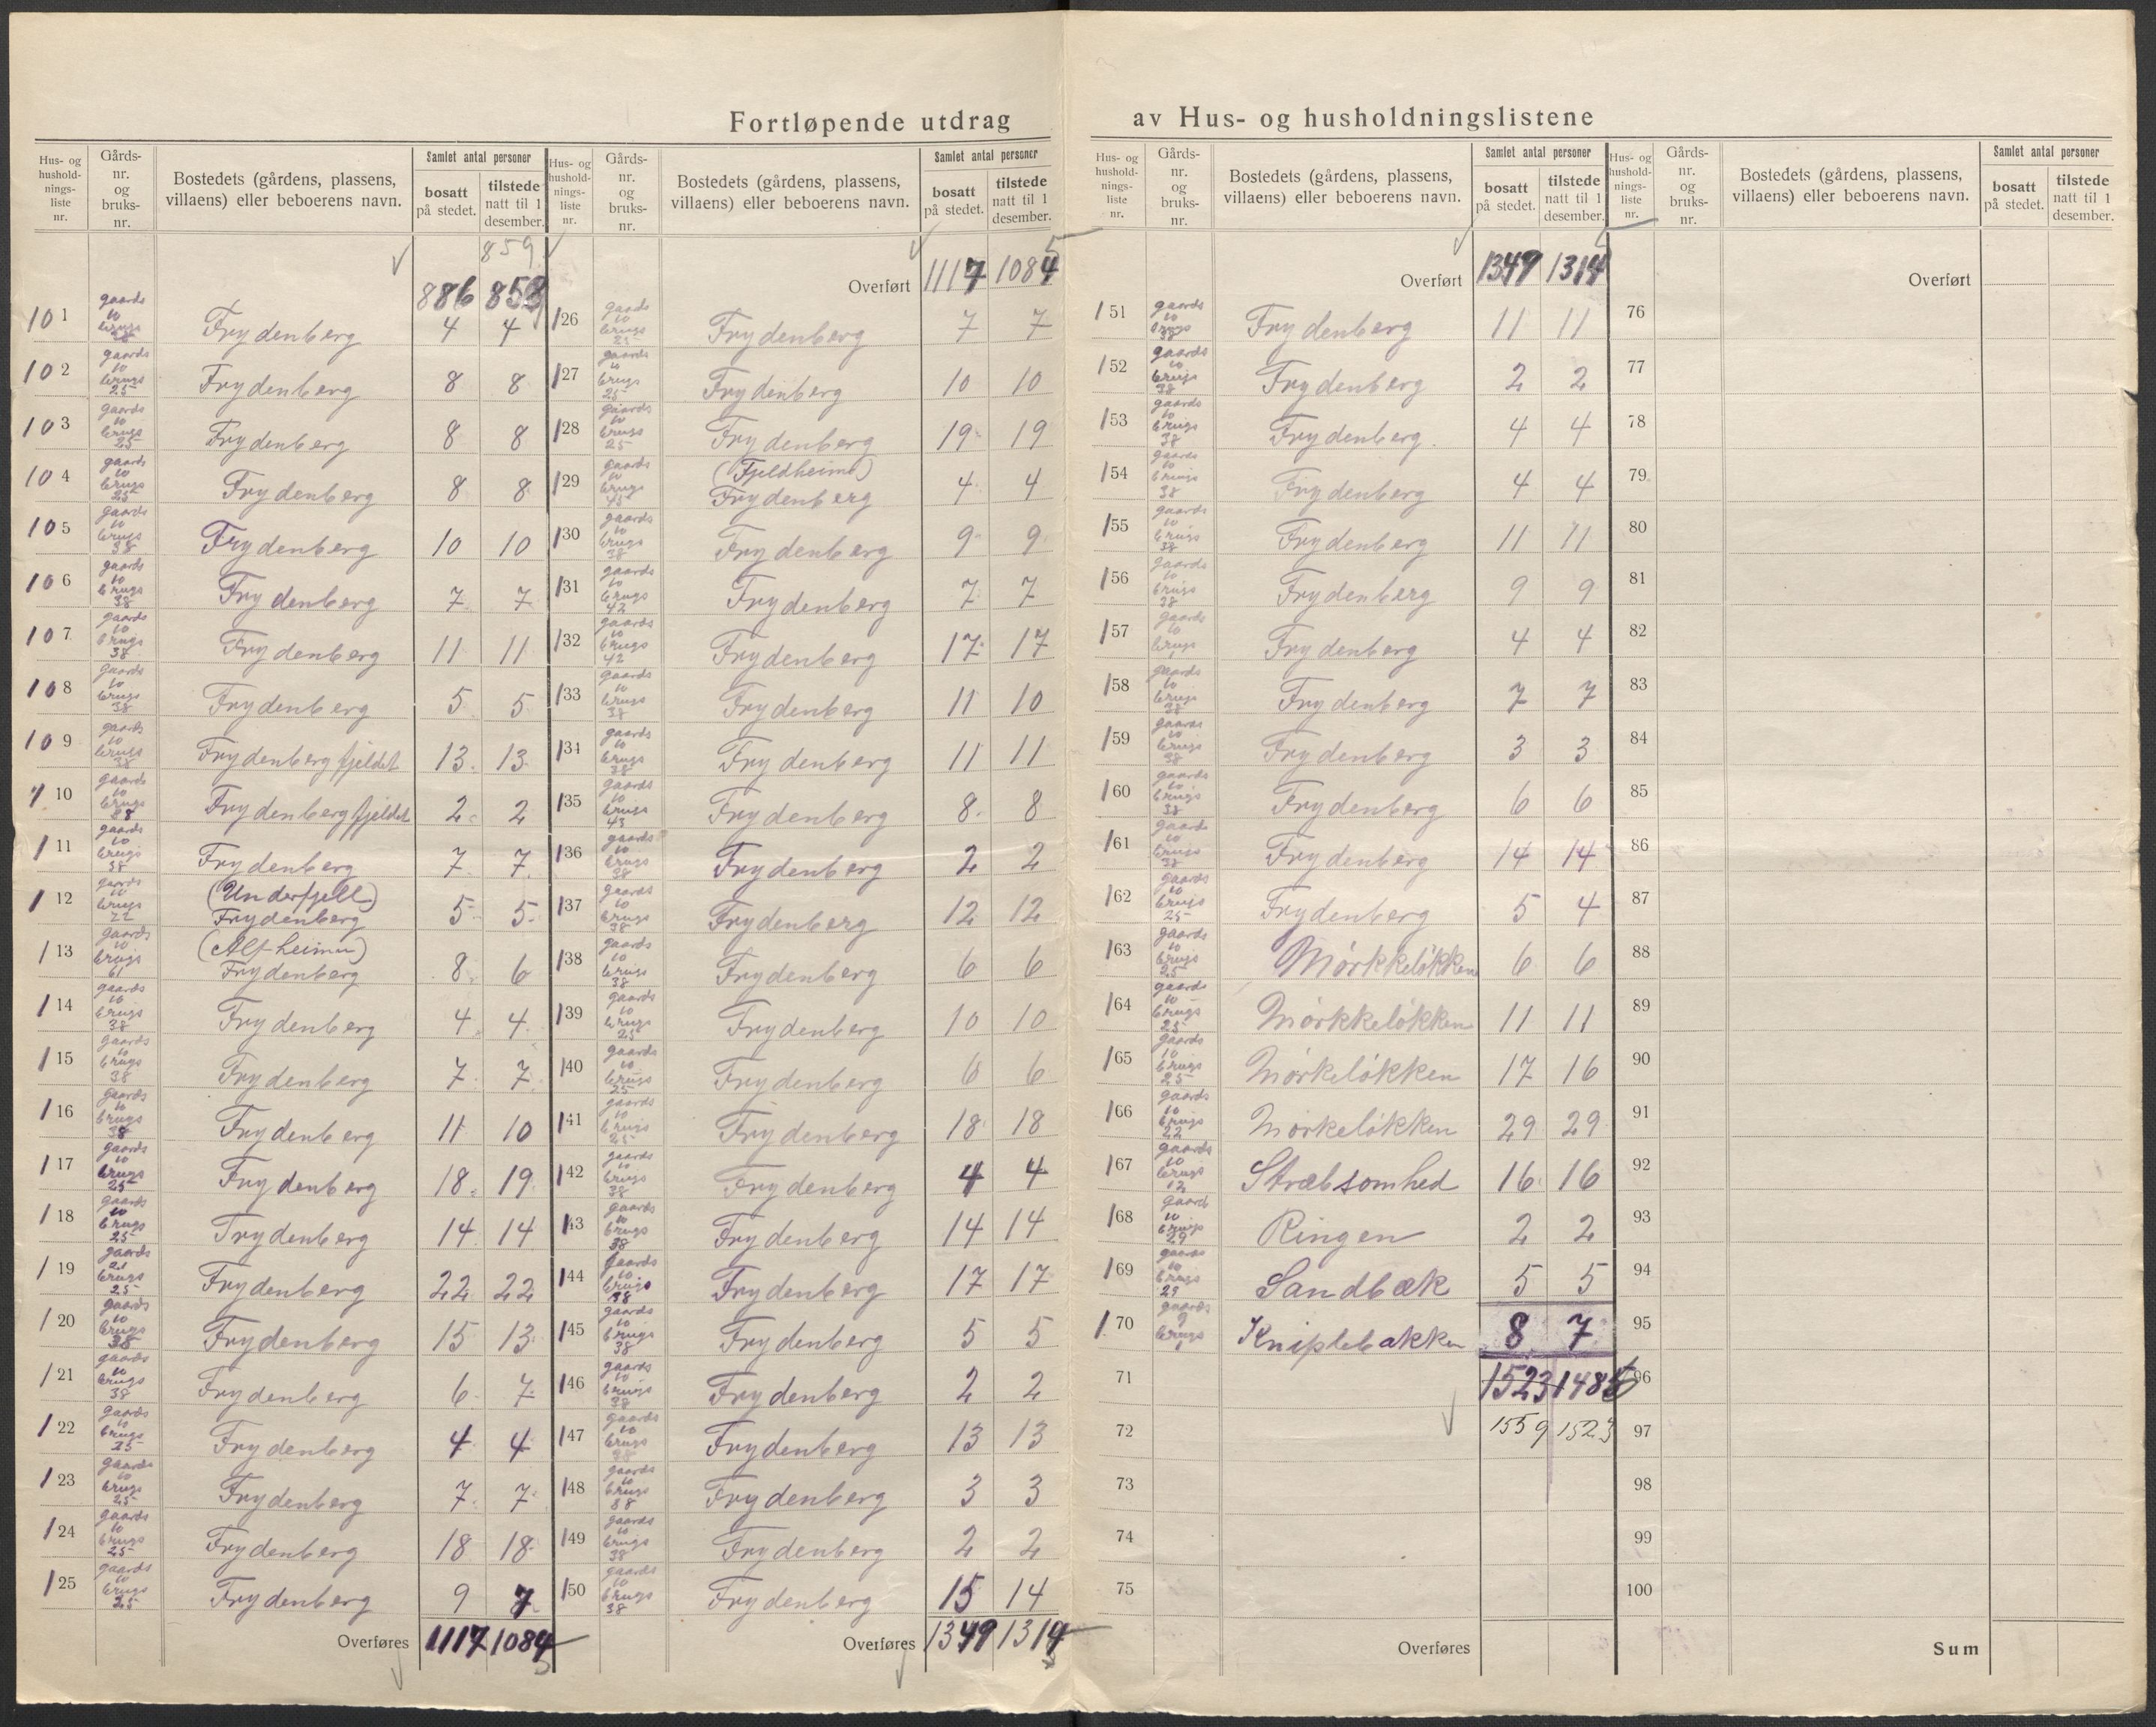 Fortløpende utdrag av Hus- og husholdningslistene
Hus- og husholdnings-liste nr. Gårds-nr. og bruks-nr. Bostedets (gårdens, plassens, villaens) eller beboerens navn. Samlet antal personer bosatt på stedet. tilstede natt til 1 desember.
859
886 858
101 gaards 10 brugs Frydenberg 4 4
102 gaards 10 brugs 25 Frydenberg 8 8
103 gaards 10 brugs 25 Frydenberg 8 8
104 gaards 10 brugs 25 Frydenberg 8 8
105 gaards 10 brugs 38 Frydenberg 10 10
106 gaards 10 brugs 38 Frydenberg 7 7
107 gaards 10 brugs 38 Frydenberg 11 11
108 gaards 10 brugs 38 Frydenberg 5 5
109 gaards 10 brugs 38 Frydenbergfjeldet 13 13
110 gaards 10 brugs 38 Frydenbergfjeldet 2 2
111 gaards 10 brugs 38 Frydenberg 7 7
112 gaards 10 brugs 22 (Underfjell) Frydenberg 5 5
113 gaards 10 brugs 61 (Alfheimen) Frydenberg 8 6
114 gaards 10 brugs 38 Frydenberg 4 4
115 gaards 10 brugs 38 Frydenberg 7 7
116 gaards 10 brugs 38 Frydenberg 11 10
117 gaards 10 brugs 25 Frydenberg 18 19
118 gaards 10 brugs 25 Frydenberg 14 14
119 gaards brugs 25 Frydenberg 22 22
120 gaards 10 brugs 38 Frydenberg 15 13
121 gaards 10 brugs 38 Frydenberg 6 7
122 gaards 10 brugs 25 Frydenberg 4 4
123 gaards 10 brugs 25 Frydenberg 7 7
124 gaards 10 brugs 25 Frydenberg 18 18
125 gaards 10 brugs 25 Frydenberg 9 7
Overføres 1117 1084
5
Hus- og husholdnings-liste nr. Gårds-nr. og bruks-nr. Bostedets (gårdens, plassens, villaens) eller beboerens navn. Samlet antal personer bosatt på stedet. tilstede natt til 1 desember.
5
Overført 1117 1084
126 gaards 10 brugs 25 Frydenberg 7 7
127 gaards 10 brugs 25 Frydenberg 10 10
128 gaards 10 brugs 25 Frydenberg 19 19
129 gaards 10 brugs 45 (Fjeldheim) Frydenberg 4 4
130 gaards 10 brugs 38 Frydenberg 9 9
131 gaards 10 brugs 42 Frydenberg 7 7
132 gaards 10 brugs 42 Frydenberg 17 17
133 gaards 10 brugs 38 Frydenberg 11 10
134 gaards 10 brugs 38 Frydenberg 11 11
135 gaards 10 brugs 43 Frydenberg 8 8
136 gaards 10 brugs 38 Frydenberg 2 2
137 gaards 10 brugs 38 Frydenberg 12 12
138 gaards 10 brugs 38 Frydenberg 6 6
139 gaards 10 brugs 25 Frydenberg 10 10
140 gaards 10 brugs 25 Frydenberg 6 6
141 gaards 10 brugs 25 Frydenberg 18 18
142 gaards 10 brugs 38 Frydenberg 4 4
143 gaards 10 brugs 38 Frydenberg 14 14
144 gaards 10 brugs 38 Frydenberg 17 17
145 gaards 10 brugs 38 Frydenberg 5 5
146 gaards 10 brugs 38 Frydenberg 2 2
147 gaards 10 brugs 38 Frydenberg 13 13
148 gaards 10 brugs 38 Frydenberg 3 3
149 gaards 10 brugs 38 Frydenberg 2 2
150 gaards 10 brugs 38 Frydenberg 15 14
Overføres 1349 1314
5
Hus- og husholdnings-liste nr. Gårds-nr. og bruks-nr. Bostedets (gårdens, plassens, villaens) eller beboerens navn. Samlet antal personer bosatt på stedet. tilstede natt til 1 desember.
5
Overført 1349 1314
151 gaards 10 brugs 38 Frydenberg 11 11
152 gaards 10 brugs 38 Frydenberg 2 2
153 gaards 10 brugs 38 Frydenberg 4 4
154 gaards 10 brugs 38 Frydenberg 4 4
155 gaards 10 brugs 38 Frydenberg 11 11
156 gaards 10 brugs 38 Frydenberg 9 9
157 gaards 10 brugs Frydenberg 4 4
158 gaards 10 brugs 38 Frydenberg 7 7
159 gaards 10 brugs 38 Frydenberg 3 3
160 gaards 10 brugs 38 Frydenberg 6 6
161 gaards 10 brugs 38 Frydenberg 14 14
162 gaards 10 brugs 25 Frydenberg 5 4
163 gaards 10 brugs 25 Mørkkeløkken 6 6
164 gaards 10 brugs 25 Mørkkeløkken 11 11
165 gaards 10 brugs 25 Mørkeløkken 17 16
166 gaards 10 brugs 22 Mørkeløkken 29 29
167 gaards 10 brugs 12 Stræbsomhed 16 16
168 gaards 10 brugs 29 Ringen 2 2
169 gaards 10 brugs 29 Sandbæk 5 5
170 gaards 9 brugs 1 Kniplebakken 8 7
71 1523 148
72 1559 1523
73
74
75
Overføres
Hus- og husholdnings-liste nr. Gårds-nr. og bruks-nr. Bostedets (gårdens, plassens, villaens) eller beboerens navn. Samlet antal personer bosatt på stedet. tilstede natt til 1 desember.
Overført
76
77
78
79
80
81
82
83
84
85
86
87
88
89
90
91
92
93
94
95
96
97
98
99
100
Sum